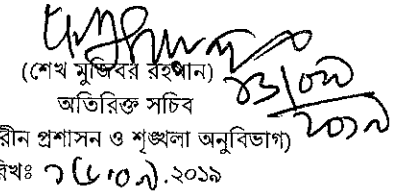 (শেখ মুজিবর রহমান)
অতিরিক্ত সচিব
রীন প্রশাসন ও শৃঙ্খলা অনুবিভাগ)
২০১৯
রিখঃ .২০১৯